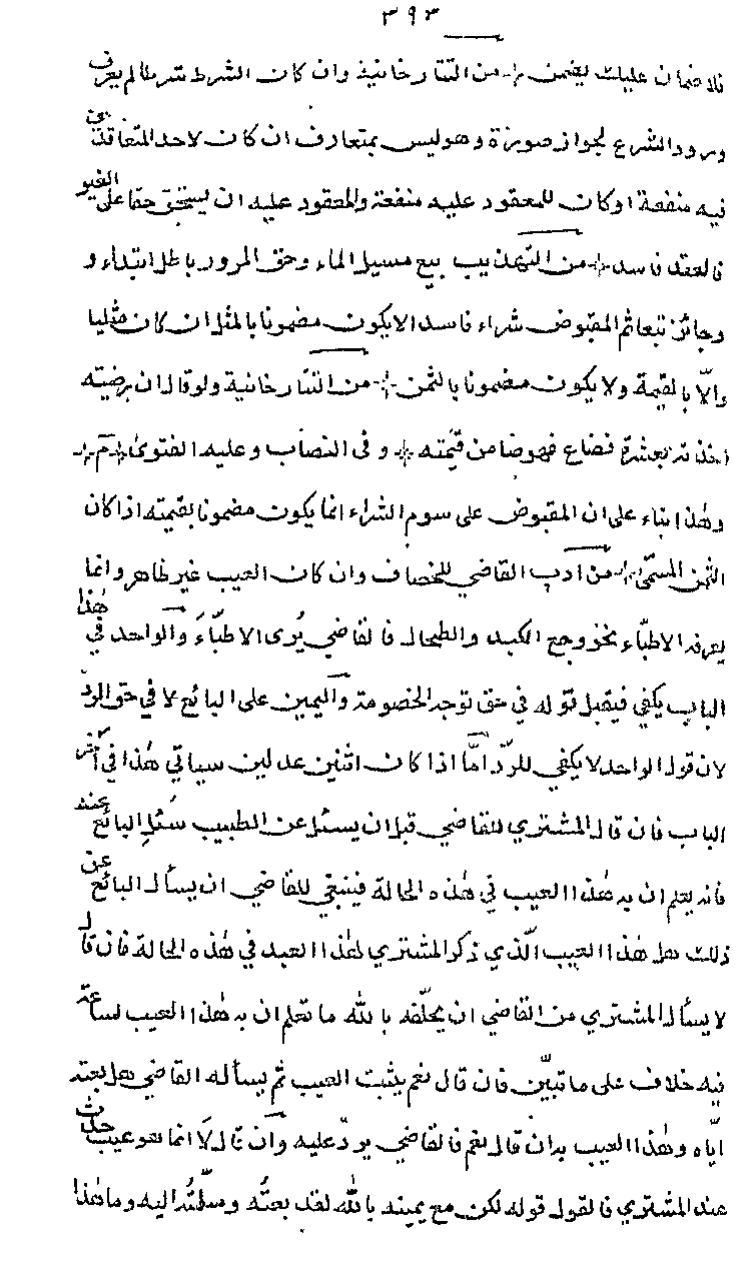 ٣٩٣
فلا ضمان عليك يضمن ÷ من التتارخانية وان كان الشرط شرطا لم يعرف
ورود الشرع بجواز صورة وهو ليس بمتعارف ان كان لاحد المتعاقدين
فيه منفعة او كان للمعقود عليه منفعة والمعقود عليه ان يستحق حقا على الغير
فالعقد فاسد ÷ من التهذيب بيع مسيل الماء وحق المرور باطل ابتداء و
وجائز تبعا ثم المقبوض شراء فاسد الا يكون مضمونا بالمثل ان كان مثليا
والّا بالقيمة ولا يكون مضمونا بالثمن ÷ من التتارخانية ولو قال ان رضيته
اخذته بعشرة فضاع فهو ضامن قيمته ÷ و فى النصاب وعليه الفتوى ÷ م ÷
وهذا بناء على ان المقبوض على سوم الشراء انما يكون مضمونا بقيمته اذا كان
الثمن المسمّى ÷ من ادب القاضي للخصاف وان كان العيب غير ظاهر وانما
يعرفه الاطبّاء نحو وجع الكبد والطحال فالقاضي يُرى الاطبّاءَ والواحد في هذا
الباب يكفي فيقبل قوله في حق توجه الخصومة واليمين على البائع لا في حق الردّ
لان قول الواحد لا يكفي للردّ امّا اذا كان اثنين عدلين سياتي هذا في آخر
الباب فان قال المشتري للقاضي قبل ان يسئل عن الطبيب سَئلِ البائع عنه
فانه يعلم ان به هذا العيب في هذه الحالة فينبغي للقاضي ان يسأل البائع عن
ذلك هل هذا العيب الّذي ذكر المشتري لهذا العبد في هذه الحالة فان قال
لا يسأل المشتري من القاضي ان يحلّفه بالله ما تعلم ان به هذا العيب لساعته
فيه خلاف على ما تبيّن فان قال نعم يثبت العيب ثم يسأله القاضي هل بعته
ايّاه وهذا العيب به ان قال نعم فالقاضي يردّ عليه وان قال لَا انما هو عيب حدث
عند المشتري فالقول قوله لكن مع يمينه بالله لقد بعتُه وسلّمتُه اليه وما هذا